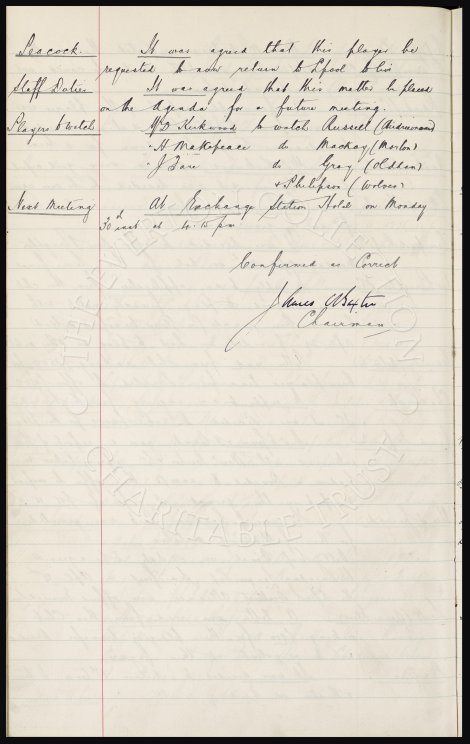 Peacock. It was agreed that this player be
requested to now return to L'pool to live
Staff Duties It was agreed that this matter be placed
on the Agenda for a future meeting.
Players to watch Mr D Kirkwood to watch Russell (Airdrieonians)
" H Makepeace do Mackay (Morton)
" J Fare do Gray (Oldham)
& Philipson (Wolves)
Next Meeting At Exchange Station Hotel on Monday
30th inst at 4.15 pm
Confirmed as Correct
James Baxter
Chairman.
THE EVERTON COLLECTION
CHARITABLE TRUST